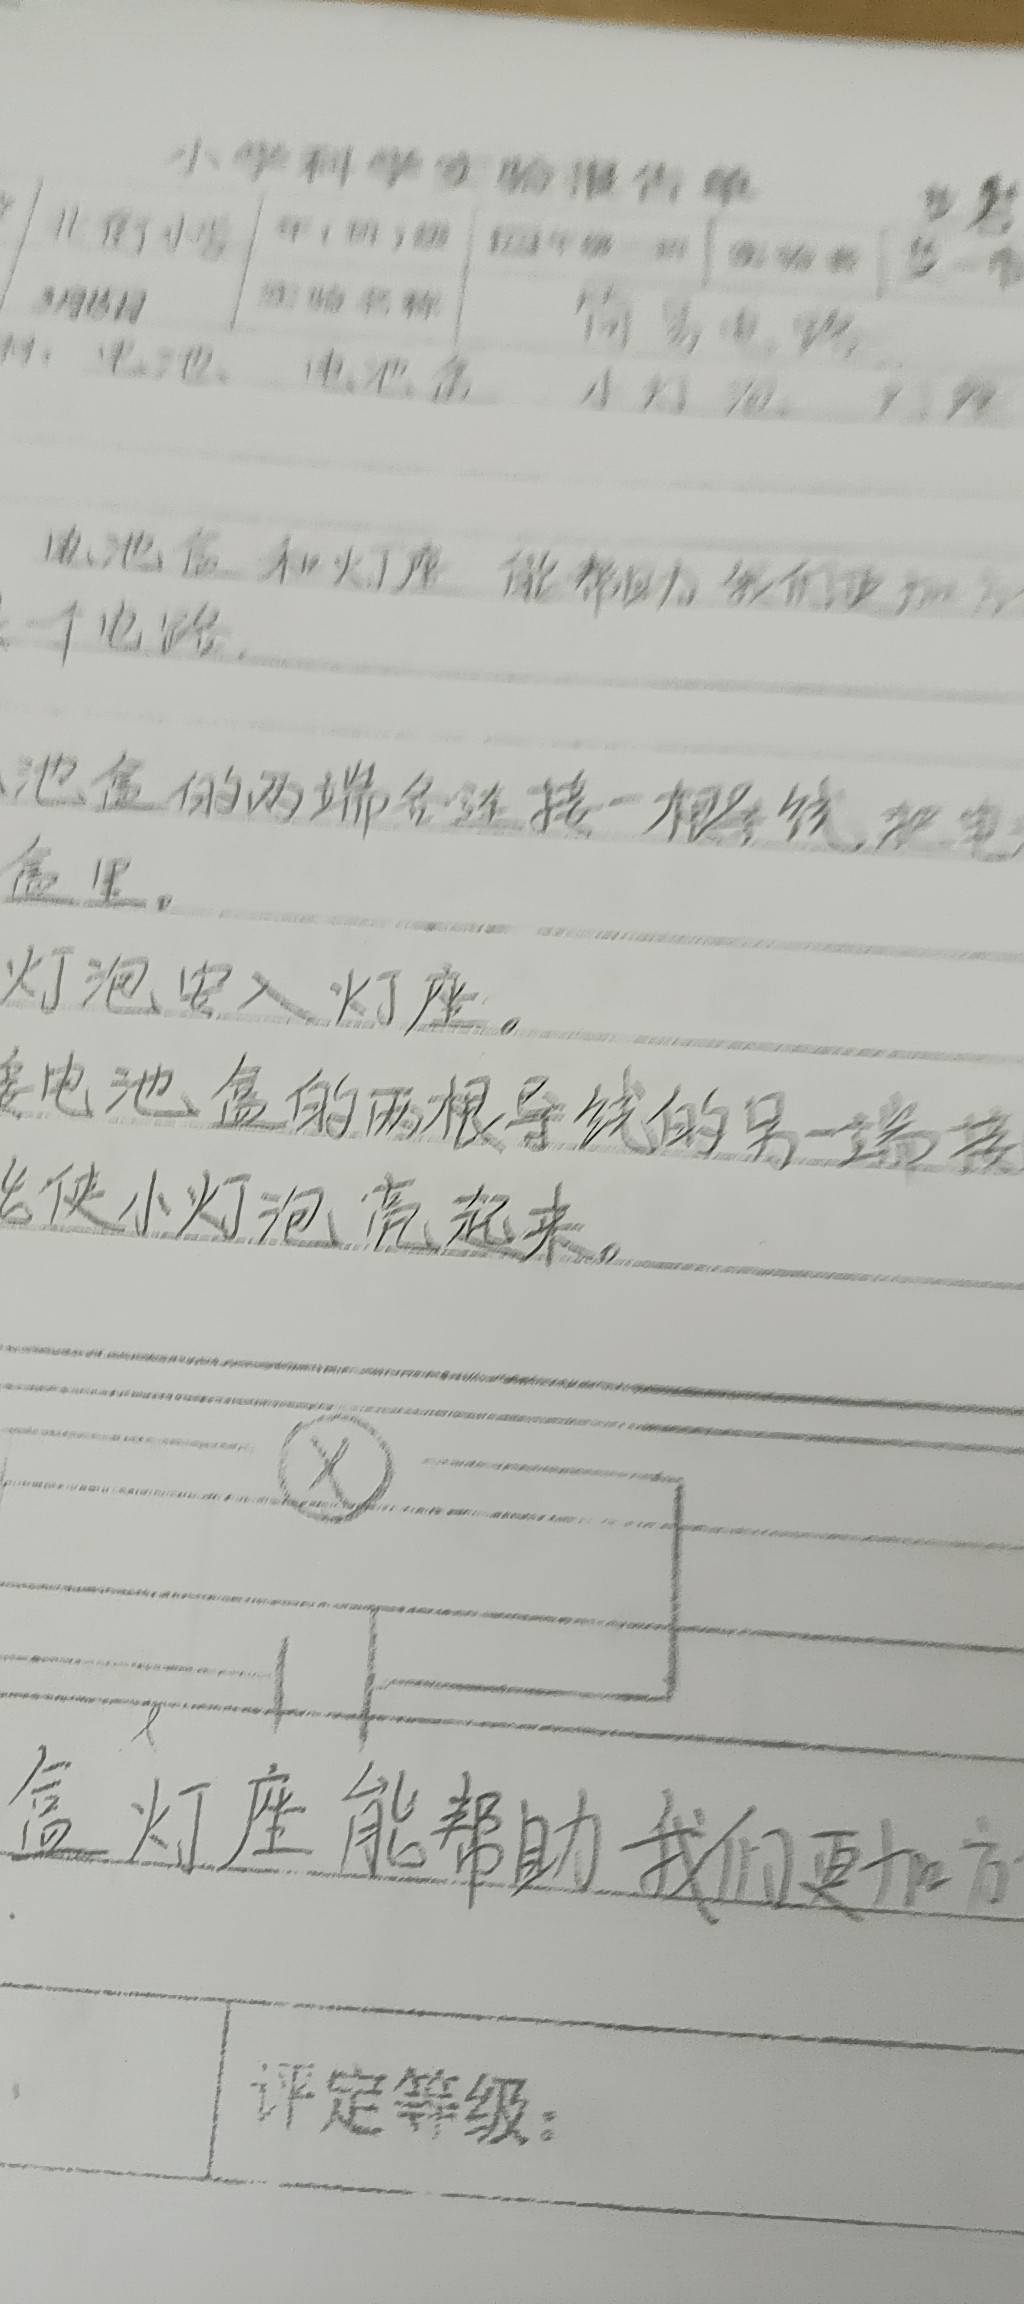 小学科学实验报告单
实验名称 简易电路
电池、 电池盒 小灯泡、
电池盒和灯座 能帮助我们更加
一个电路.
池盒的两端各连接一根导线,把电
盒里。
灯泡安入灯座。
电池盒的两根导线的另一端接
使小灯泡亮起来。
盒灯座能帮助我们更加方
评定等级: